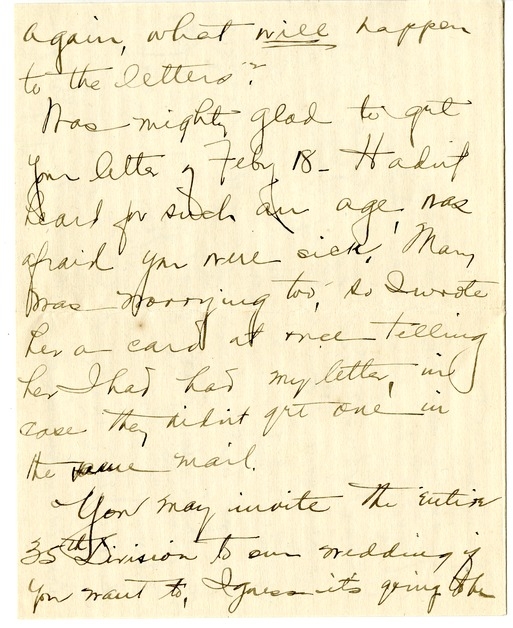 again, what will happen
to the letters"?
Was mighty glad to get
your letter of Feby 18 - Hadn't
heard for such an age, was
afraid you were sick. Mary
was worrying too, so I wrote
her a card at once telling
her I had had my letter, in
case they didn't get one in
the same mail.
You may invite the entire
35th Division to our wedding if
you want to, I guess it's going to be